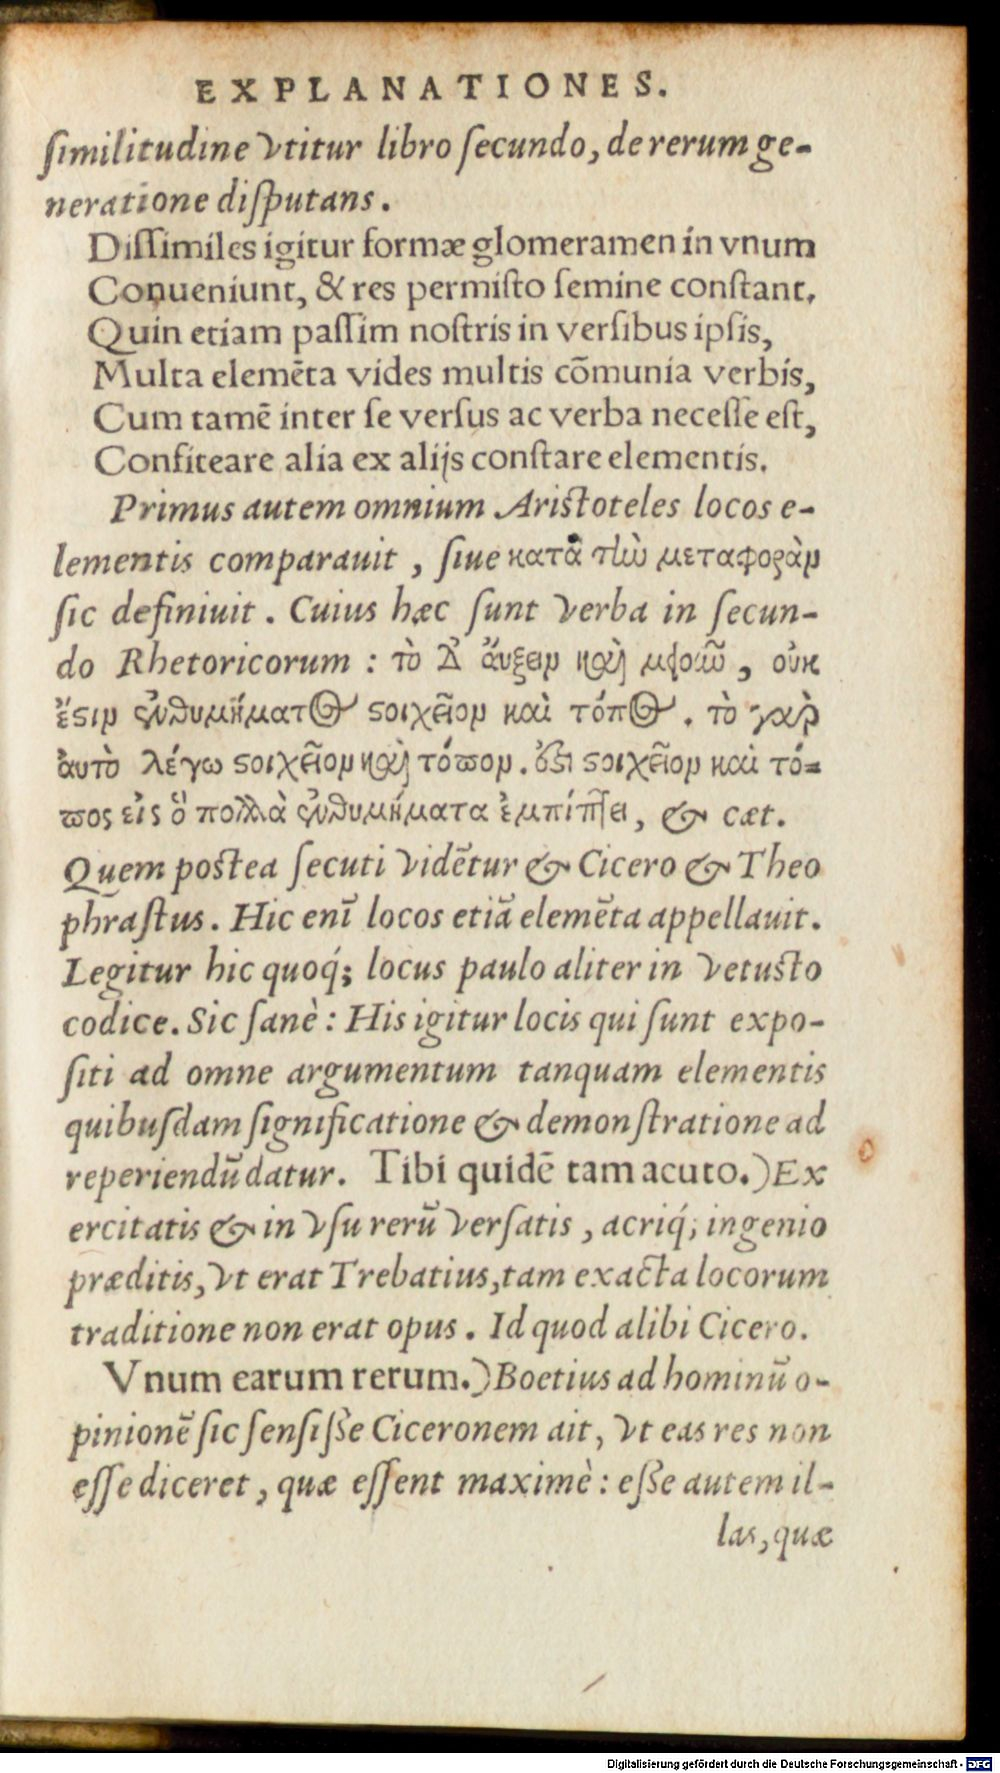 EXPLANATIONES.
ſimilitudine vtitur libro ſecundo, de rerum ge-
neratione diſputans.
Diſſimiles igitur formæ glomeramen in vnum
Conueniunt, & res permiſto ſemine conſtant.
Quin etiam paſſim noſtris in verſibus ipſis,
Multa elemēta vides multis cōmunia verbis,
Cum tamē inter ſe verſus ac verba neceſſe eſt,
Confiteare alia ex alijs conſtare elementis.
Primus autem omnium Ariſtoteles locos e-
lementis comparauit, ſiue κατὰ τὴν μεταφορὰν
ſic definiuit. Cuius hæc ſunt verba in ſecun-
do Rhetoricorum: τὸ δ' ἄυξειν καὶ μειοῦν, οὐκ
ἔστιν ἐνθυμήματος στοιχεῖον καὶ τόπος. τὸ γὰρ
ἀυτὸ λέγω στοιχεῖον καὶ τόπον. ὅστι στοιχεῖον καὶ τό=
πος εἰς ὃ πολλὰ ἐνθυμήματα ἐμπίπτει, & cæt.
Quem poſtea ſecuti vidētur & Cicero & Theo
phraſtus. Hic enī locos etiā elemēta appellauit.
Legitur hic quoq́; locus paulo aliter in vetuſto
codice. Sic ſanè: His igitur locis qui ſunt expo-
ſiti ad omne argumentum tanquam elementis
quibuſdam ſignificatione & demonſtratione ad
reperiendū datur. Tibi quidē tam acuto.) Ex
ercitatis & in vſu rerū verſatis, acriq́; ingenio
præditis, vt erat Trebatius, tam exacta locorum
traditione non erat opus. Id quod alibi Cicero.
Vnum earum rerum.) Boetius ad hominū o-
pinionē ſic ſenſiſſe Ciceronem ait, vt eas res non
eſſe diceret, quæ eſſent maximè: eſſe autem il-
las, quæ
Digitalisierung gefördert durch die Deutsche Forschungsgemeinschaft - DFG